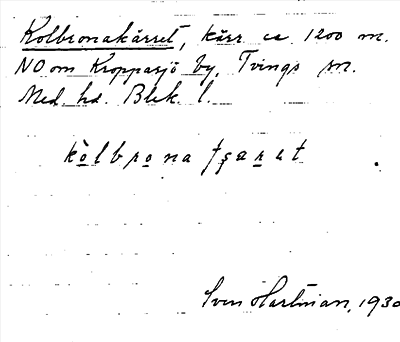 Kolbronakärret, kärr ca 1200 m.
NO om Kroppasjö by, Tvings sn.
Med. hd. Blek. l.
kòlbrona tʃærat
Sven Hartman, 1930